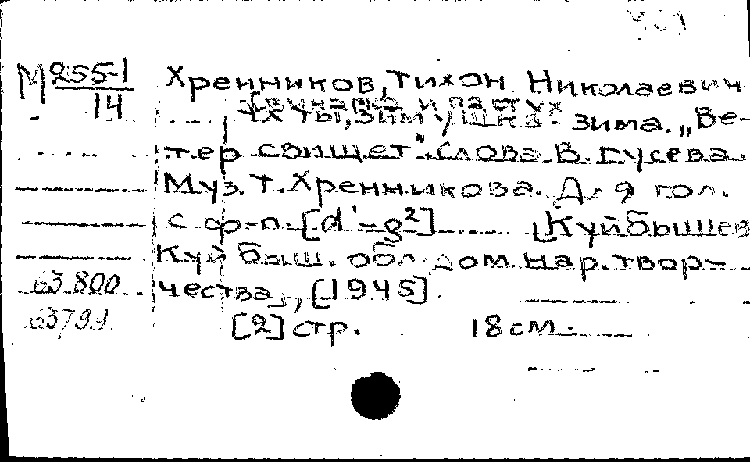 М 255-1
14
Хренников, Тихон Николаевич
[Свинарка и пастух
Эх ты, зимушка-зима. „Ве-
тер свищет". Слова В. Гусева.
Муз. Т. Хренникова. Для гол.
с ф-п. [d'-g²] [Куйбышев
Куйбыш. обл. дом нар. твор-
чества, [1945].
63800
63799
[2] стр. 18 см.